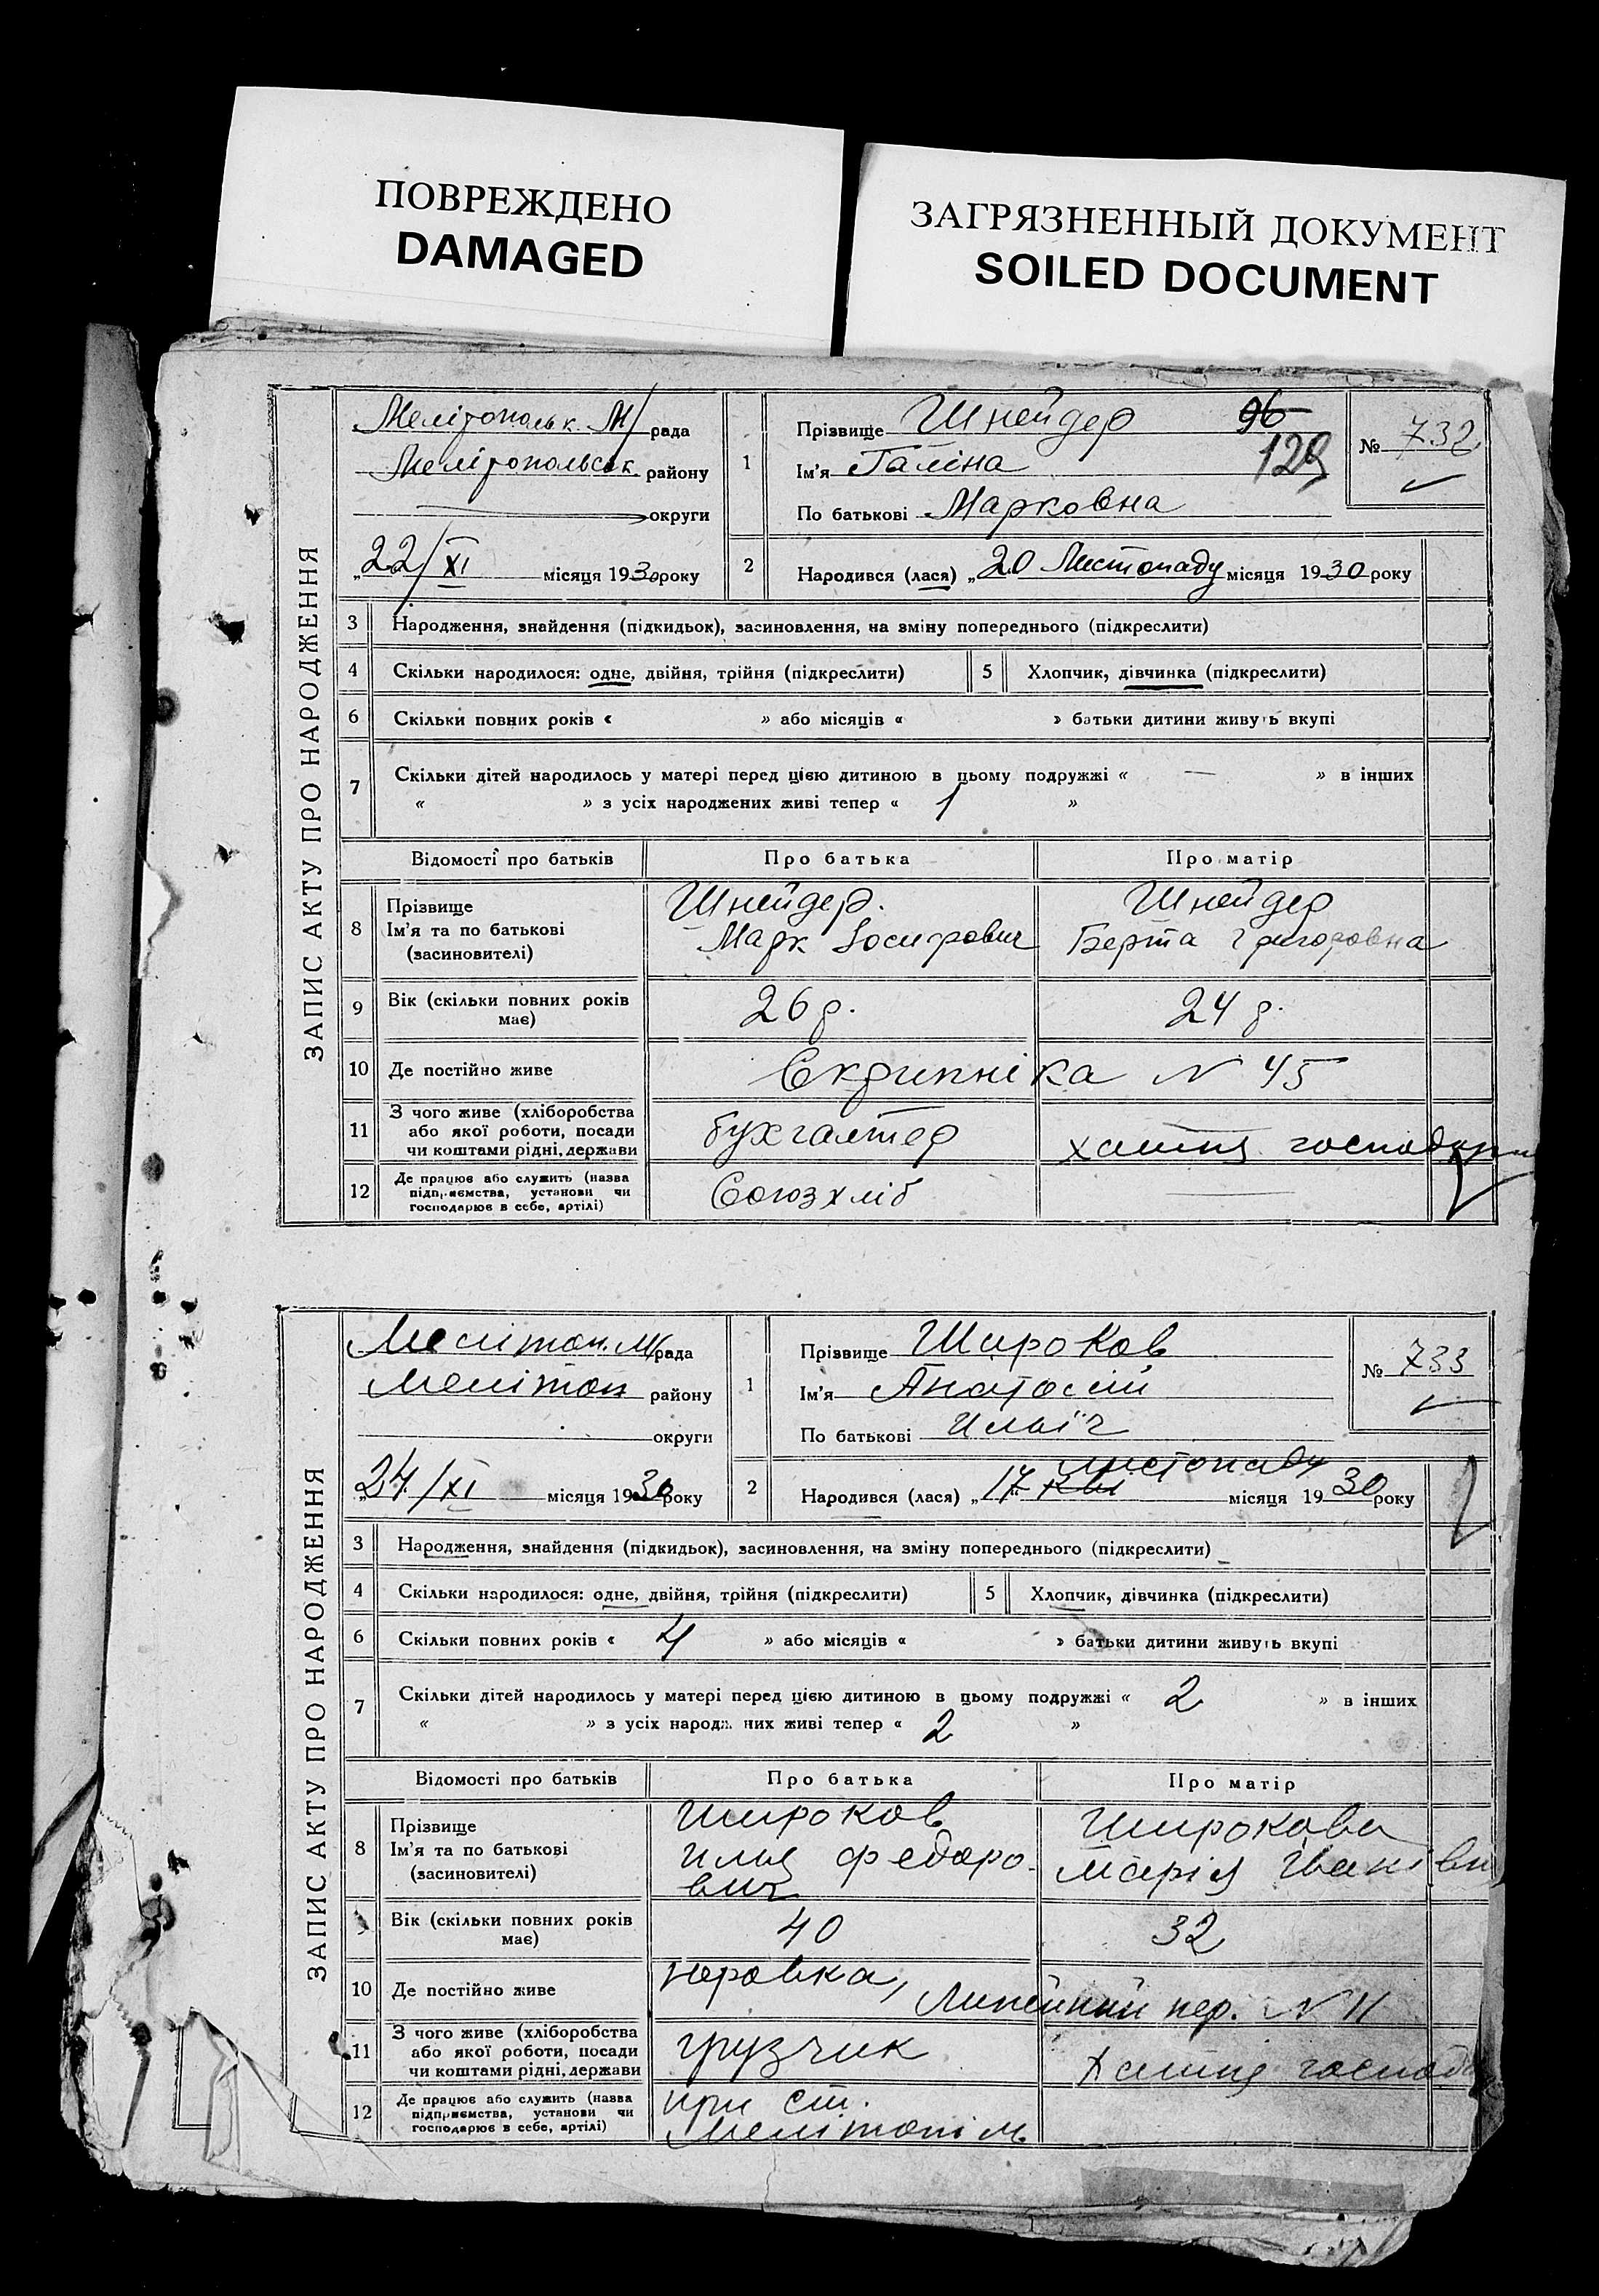 ПОВРЕЖДЕНО
DAMAGED
ЗАГРЯЗНЕННЫЙ ДОКУМЕНТ
SOILED DOCUMENT
ЗАПИС АКТУ ПРО НАРОДЖЕННЯ
Мелітопольк. М/рада
Мелітопольськ району
округи
„22/XI місяця 1930 року
1
Прізвище Шнейдер 96
Ім'я Галіна 129
По батькові Марковна
№ 732
2
Народився (лася) „20 Листопаду місяця 1930 року
3 Народження, знайдення (підкидьок), засиновлення, на зміну попереднього (підкреслити)
4 Скільки народилося: одне, двійня, трійня (підкреслити) 5 Хлопчик, дівчинка (підкреслити)
6 Скільки повних років « » або місяців « » батьки дитини живуть вкупі
7 Скільки дітей народилось у матері перед цією дитиною в цьому подружжі « — » в інших
« » з усіх народжених живі тепер « 1 »
Відомості про батьків Про батька Про матір
8 Прізвище Шнейдер. Шнейдер
Ім'я та по батькові Марк Іосифович Берта Григоровна
(засиновителі)
9 Вік (скільки повних років має) 26 р. 24 р.
10 Де постійно живе Скрипніка N 45
11 З чого живе (хліборобства
або якої роботи, посади
чи коштами рідні, держави бухгалтер хатня
12 Де працює або служить (назва
підприємства, установи чи
господарює в себе, артілі) Союзхліб —
ЗАПИС АКТУ ПРО НАРОДЖЕННЯ
Мелітоп. М/рада
Мелітоп району
округи
„24/XI місяця 1930 року
1
Прізвище Широков
Ім'я Анатолій
По батькові Ильїч
№ 733
2
листопаду
Народився (лася) „17 місяця 1930 року
3 Народження, знайдення (підкидьок), засиновлення, на зміну попереднього (підкреслити)
4 Скільки народилося: одне, двійня, трійня (підкреслити) 5 Хлопчик, дівчинка (підкреслити)
6 Скільки повних років « 4 » або місяців « » батьки дитини живуть вкупі
7 Скільки дітей народилось у матері перед цією дитиною в цьому подружжі « 2 » в інших
« » з усіх народжених живі тепер « 2 »
Відомості про батьків Про батька Про матір
8 Прізвище Широков Широкова
Ім'я та по батькові Илья Федоро- Марія Іванівн
(засиновителі) вич
Вік (скільки повних років має) 40 32
10 Де постійно живе Линейний пер. N 11
11 З чого живе (хліборобства
або якої роботи, посади
чи коштами рідні, держави грузчик хатня
12 Де працює або служить (назва
підприємства, установи чи
господарює в себе, артілі) при ст.